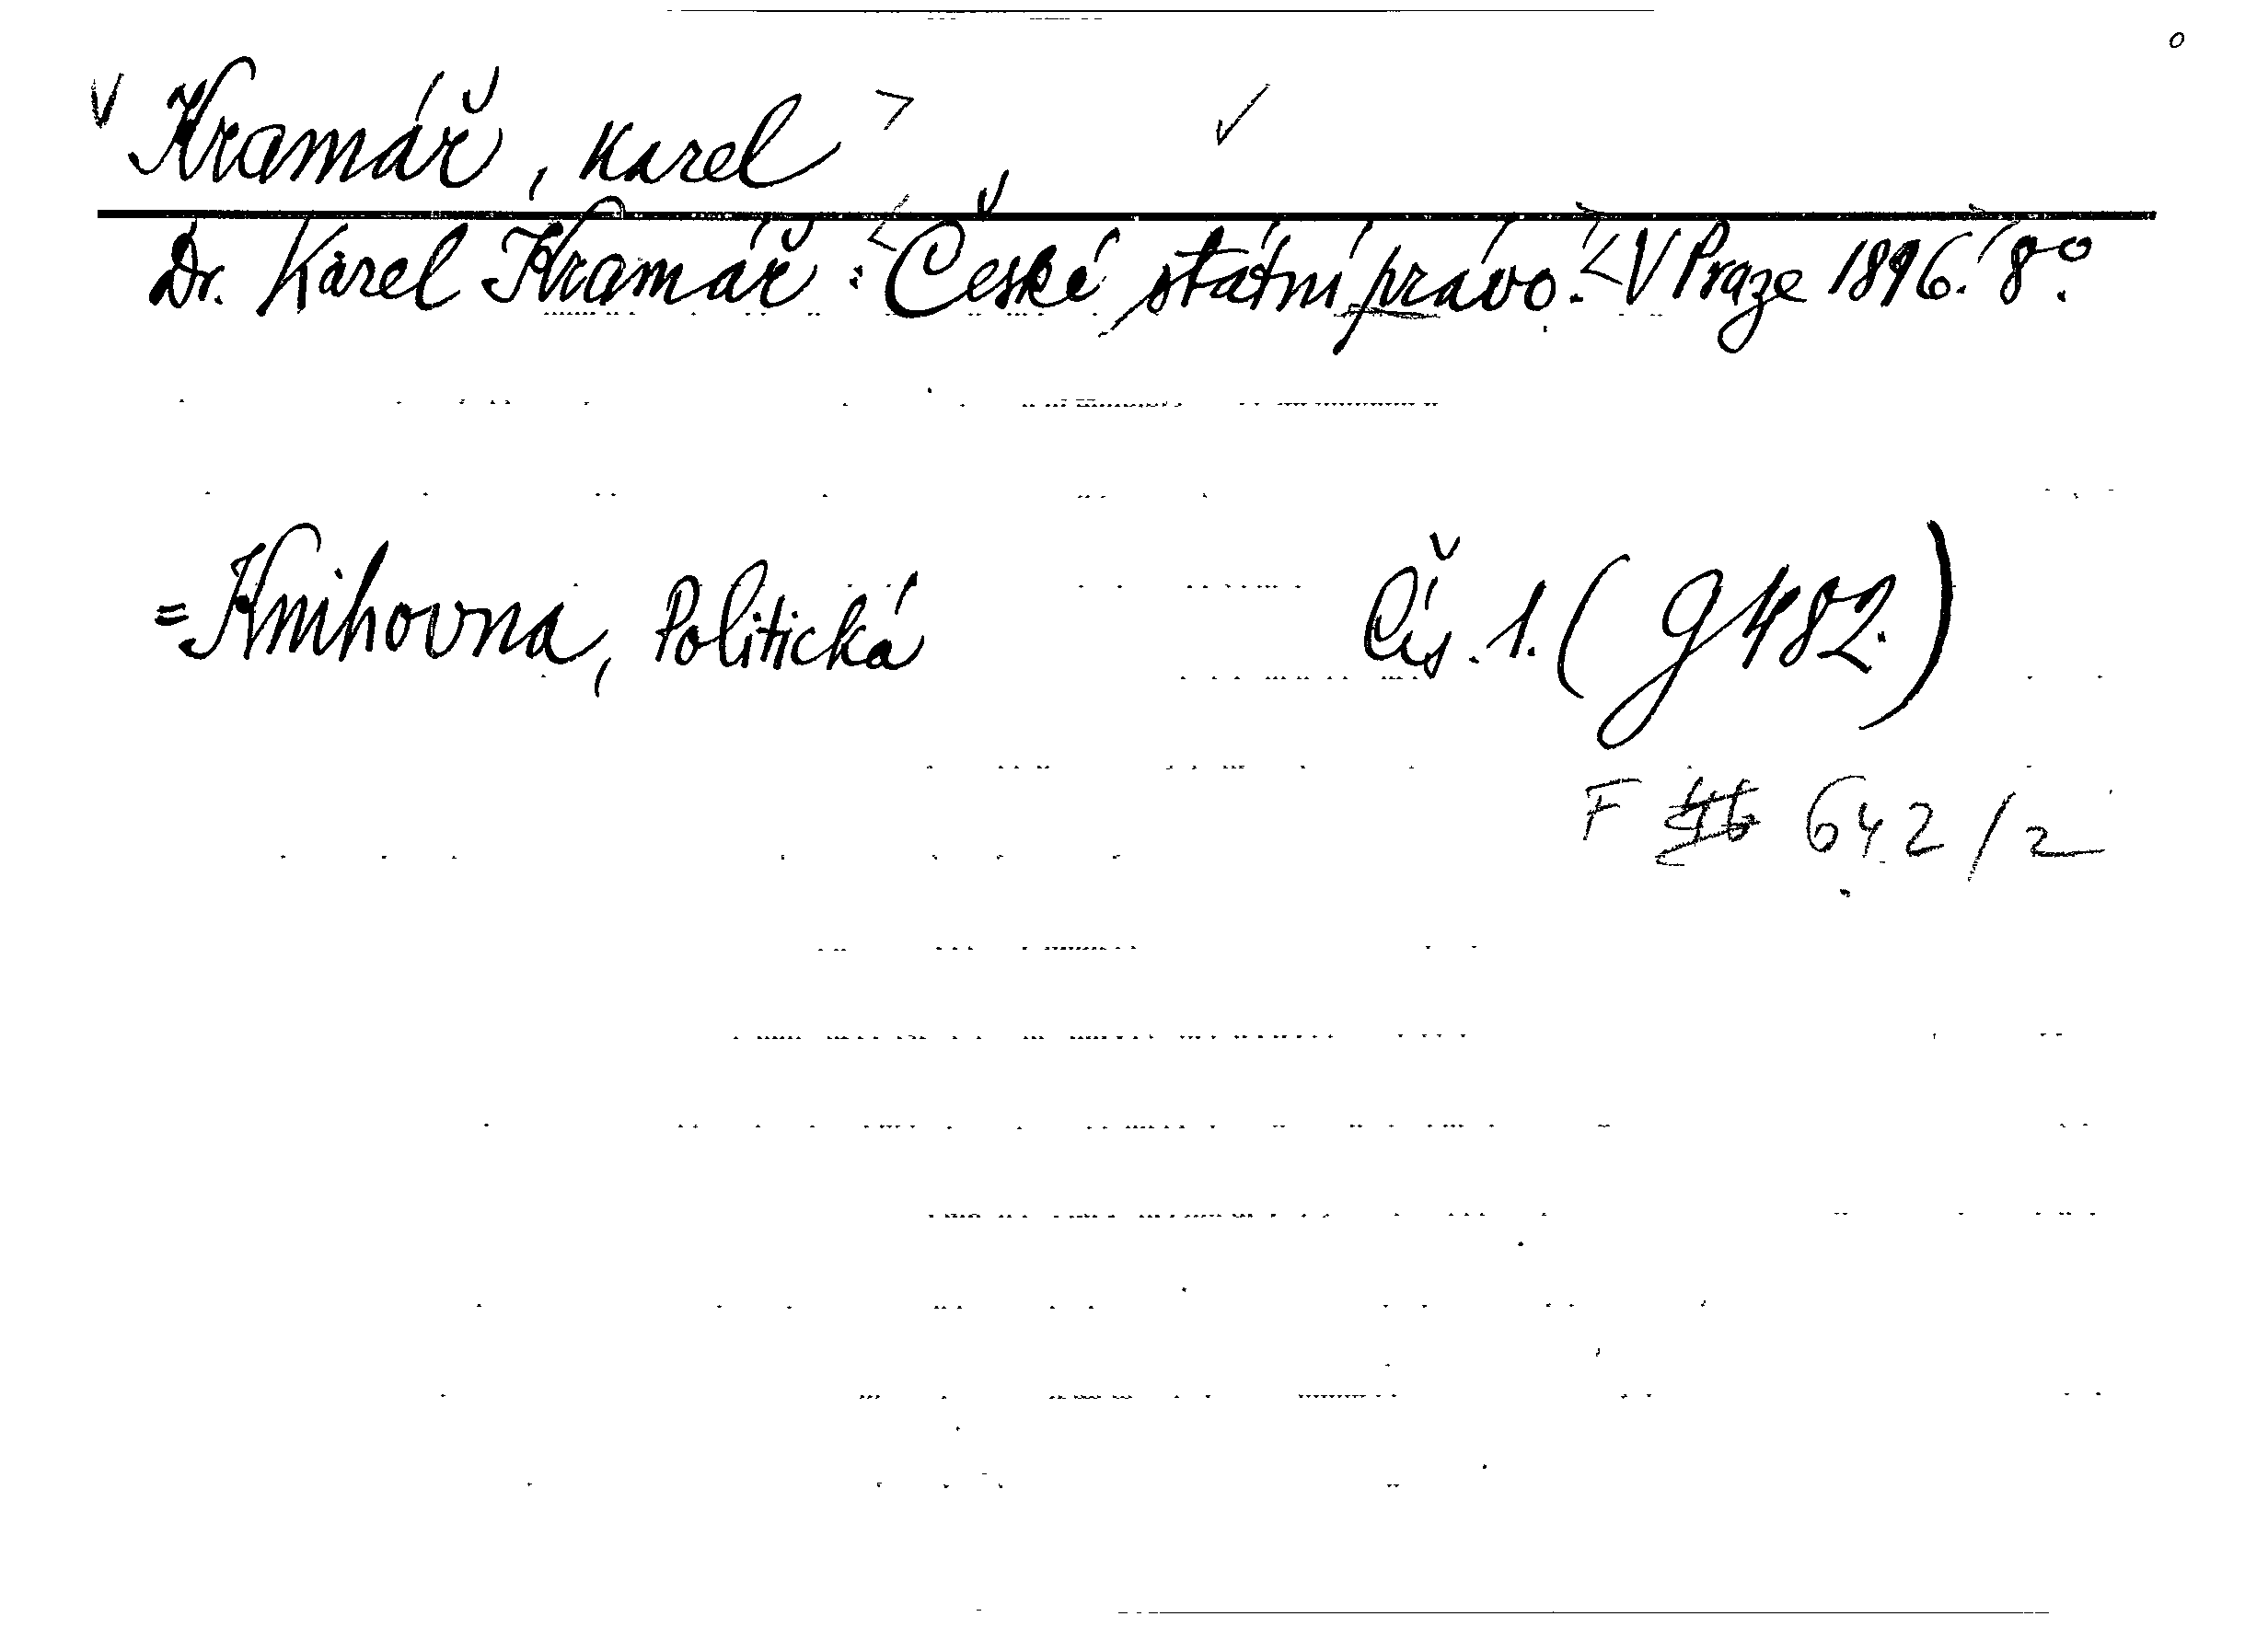 Kramář, Karel
Dr. Karel Kramář: České státní právo. V Praze 1896. 8°.
= Knihovna, Politická Čís. 1. (G 482.)
F 642/2